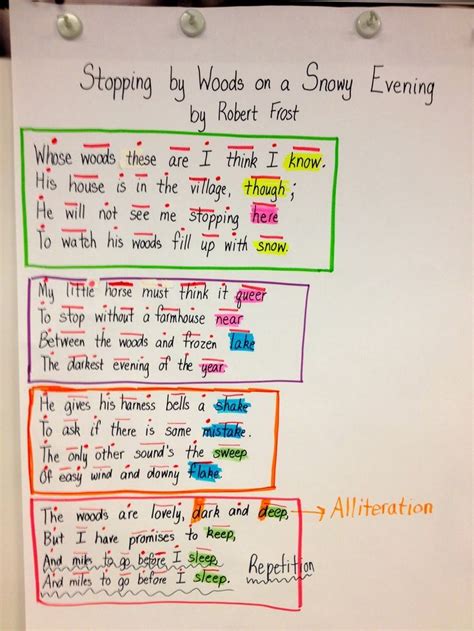 Stopping by Woods on a Snowy Evening
by Robert Frost
Whose woods these are I think I know.
His house is in the village, though;
He will not see me stopping here
To watch his woods fill up with snow.
My little horse must think it queer
To stop without a farmhouse near
Between the woods and frozen lake
The darkest evening of the year.
He gives his harness bells a shake
To ask if there is some mistake.
The only other sound's the sweep
Of easy wind and downy flake.
The woods are lovely, dark and deep, → Alliteration
But I have promises to keep,
And miles to go before I sleep, Repetition
And miles to go before I sleep.